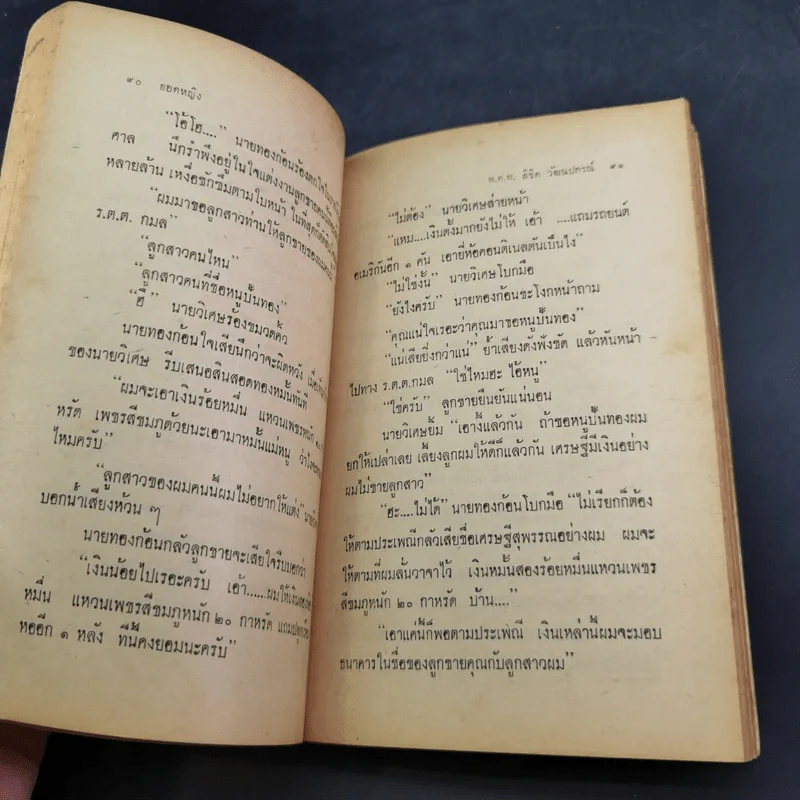 ๙๐ ยอดหญิง
“โอ้โฮ....” นายทองก้อนร้องตกใจ
ศาล นึกรำพึงอยู่ในใจแต่งงานลูกชาย
หลายล้าน เหงื่อซักซึมตามใบหน้า ในที่สุด
“ผมมาขอลูกสาวท่านให้ลูกชายของผม
ร.ต.ต. กมล
“ลูกสาวคนไหน”
“ลูกสาวคนที่ชื่อหนูปั้นทอง”
“ฮึ” นายวิเศษร้องขมวดคิ้ว
นายทองก้อนใจเสียนึกว่าจะผิดหวัง
ของนายวิเศษ รีบเสนอสินสอดทองหมั้นทันที
“ผมจะเอาเงินร้อยหมื่น แหวนเพชรหนัก
หรัด เพชรสีชมภูด้วยนะเอามาหมั้นแม่หนู
ไหมครับ”
“ลูกสาวของผมคนนี้ผมไม่อยากให้แต่ง”
บอกน้ำเสียงห้วน ๆ
นายทองก้อนกลัวลูกชายจะเสียใจรีบบอกว่า
“เงินน้อยไปเรอะครับ เอ้า......ผมให้เงิน
หมื่น แหวนเพชรสีชมภูหนัก ๒๐ กาหรัด แถม
หออีก ๑ หลัง ที่นี้คงยอมนะครับ”
พ.ต.ท. ลิขิต วัฒนปกรณ์ ๙๑
“ไม่ต้อง” นายวิเศษส่ายหน้า
“แหม....เงินตั้งมากยังไม่ให้ เอ้า ....แถมรถยนต์
อเมริกันอีก ๑ คัน เอายี่ห้อคอนติเนลตันเป็นไง”
“ไม่ใช่งั้น” นายวิเศษโบกมือ
“ยังไงครับ” นายทองก้อนชะโงกหน้าถาม
“คุณแน่ใจเรอะว่าคุณมาขอหนูปั้นทอง”
“แน่เสียยิ่งกว่าแน่” ย้ำเสียงดังฟังชัด แล้วหันหน้า
ไปทาง ร.ต.ต.กมล “ใช่ไหมฮะ ไอ้หนู”
“ใช่ครับ” ลูกชายยืนยันแน่นอน
นายวิเศษยิ้ม “เอางี้แล้วกัน ถ้าขอหนูปั้นทองผม
ยกให้เปล่าเลย เลี้ยงลูกผมให้ดีก็แล้วกัน เศรษฐีมีเงินอย่าง
ผมไม่ขายลูกสาว”
“ฮะ....ไม่ได้” นายทองก้อนโบกมือ “ไม่เรียกก็ต้อง
ให้ตามประเพณีกลัวเสียชื่อเศรษฐีสุพรรณอย่างผม ผมจะ
ให้ตามที่ผมลั่นวาจาไว้ เงินหมั้นสองร้อยหมื่นแหวนเพชร
สีชมภูหนัก ๒๐ กาหรัด บ้าน....”
“เอาแค่นี้ก็พอตามประเพณี เงินเหล่านี้ผมจะมอบ
ธนาคารในชื่อของลูกชายคุณกับลูกสาวผม”